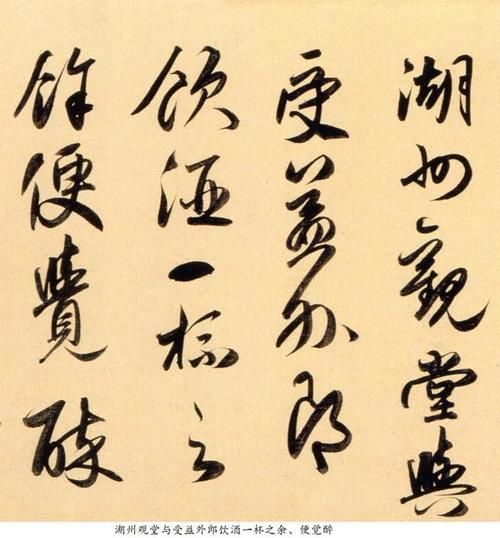 湖州觀堂與
受益外郎
飲酒一杯之
餘便覺醉
湖州观堂与受益外郎饮酒一杯之余、便觉醉